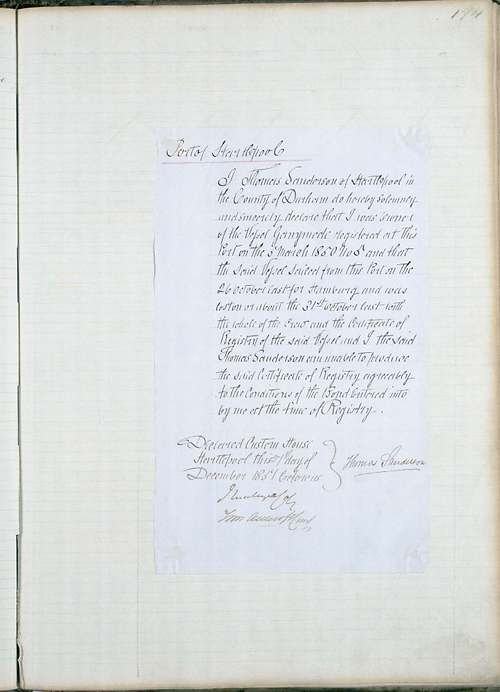 Port of Hartlepool
I Thomas Sanderson of Hartlepool in
the County of Durham do hereby solemnly
and sincerely declare that I was owner
of the Vessel Ganymede registered at this
Port on the 5 March 1850 No 5 and that
the said Vessel sailed from this Port on the
26 October last for Hamburg and was
lost on or about the 31st October last with
the whole of the Crew and the Certificate of
Registry of the said Vessel and I the said
Thomas Sanderson am unable to produce
the said Certificate of Registry agreeably
to the Conditions of the Bond entered into
by me at the time of Registry.
Declared Custom House
Hartlepool this day of
December 1851 before us
Thomas Sanderson